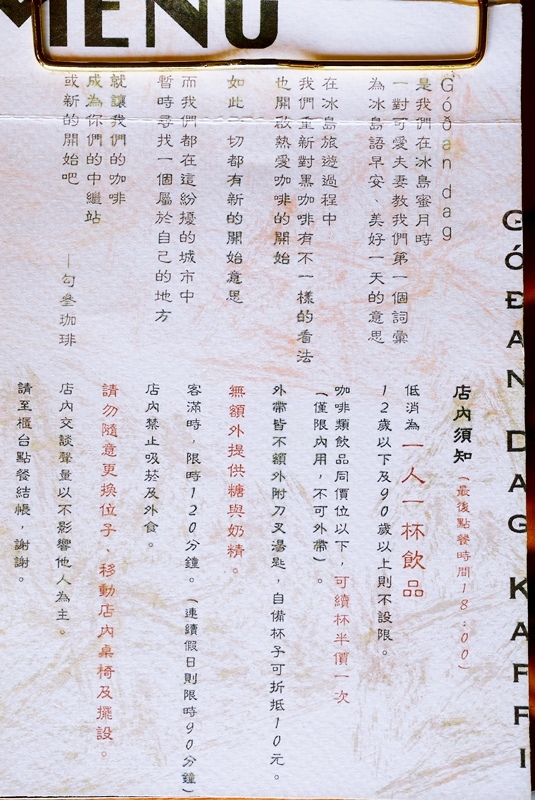 MENU
GÓÐAN DAG KAFFI
Góðan dag
是我們在冰島蜜月時
一對可愛夫妻教我們第一個詞彙
為冰島語早安、美好一天的意思
在冰島旅遊過程中
我們重新對黑咖啡有不一樣的看法
也開啟熱愛咖啡的開始
如此一切都有新的開始意思
而我們都在這紛擾的城市中
暫時尋找一個屬於自己的地方
就讓我們的咖啡
成為你們的中繼站
或新的開始吧
—勾叁珈琲
店內須知(最後點餐時間18:00)
低消為一人一杯飲品
12歲以下及90歲以上則不設限。
咖啡類飲品同價位以下,可續杯半價一次
(僅限內用,不可外帶)。
外帶皆不額外附刀叉湯匙,自備杯子可折抵10元。
無額外提供糖與奶精。
客滿時,限時120分鐘。(連續假日則限時90分鐘)
店內禁止吸菸及外食。
請勿隨意更換位子、移動店內桌椅及擺設。
店內交談聲量以不影響他人為主。
請至櫃台點餐結帳,謝謝。